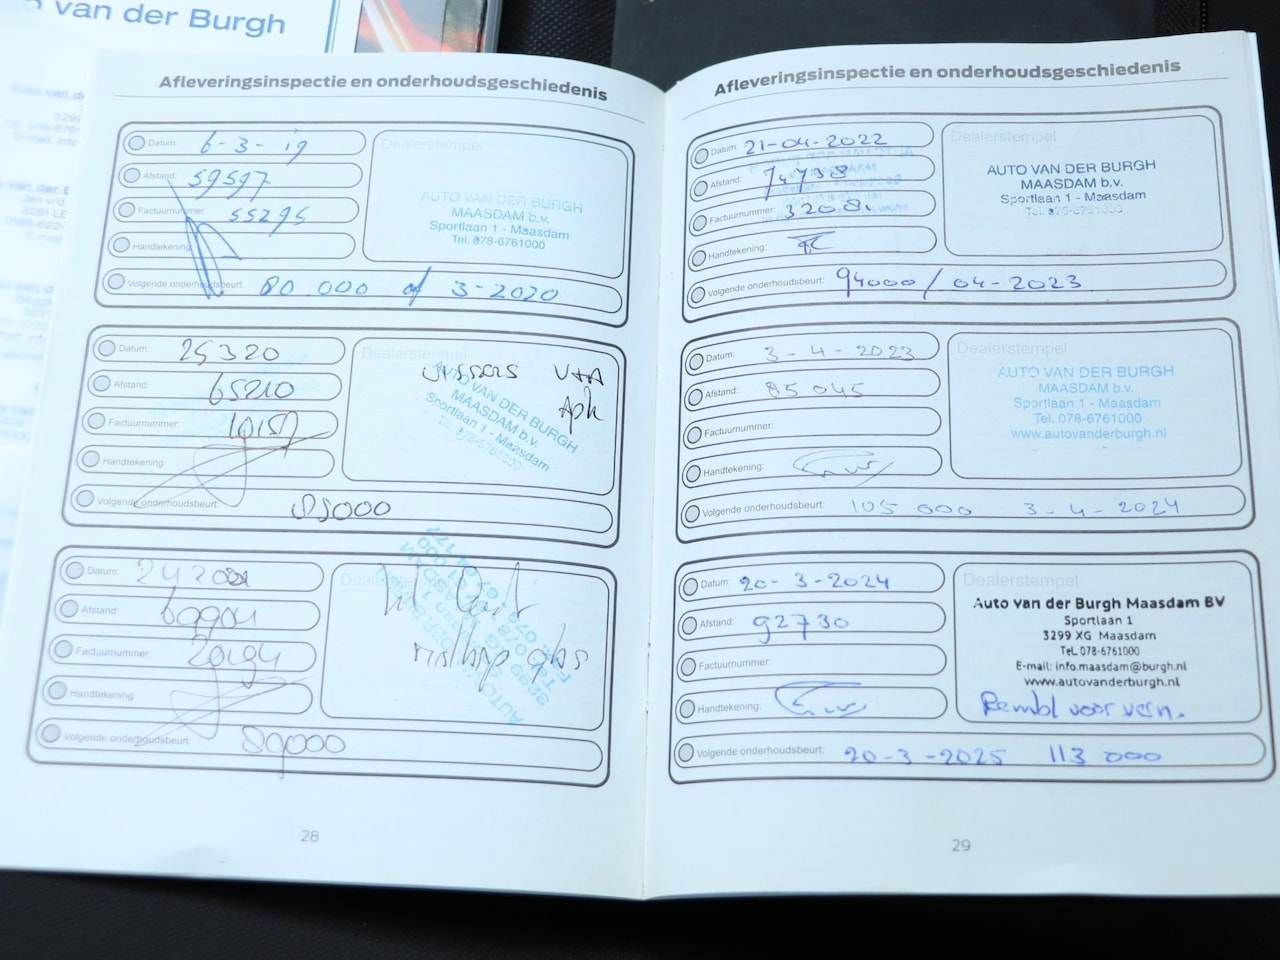 van der Burgh
Afleveringsinspectie en onderhoudsgeschiedenis
Datum: 6-3-19
Afstand: 59597
Factuurnummer: 55295
Handtekening:
Dealerstempel
AUTO VAN DER BURGH
MAASDAM b.v.
Sportlaan 1 - Maasdam
Tel. 078-6761000
Volgende onderhoudsbeurt: 80.000 of 3-2020
Datum: 25320
Afstand: 65210
Factuurnummer: 10157
Handtekening:
Dealerstempel
VAN DER BURGH
MAASDAM b.v.
Sportlaan 1 - Maasdam
Apk
Volgende onderhoudsbeurt: 85000
Datum:
Afstand:
Factuurnummer:
Handtekening:
Dealerstempel
Volgende onderhoudsbeurt: 89000
28
Afleveringsinspectie en onderhoudsgeschiedenis
Datum: 21-04-2022
Afstand: 74738
Factuurnummer:
Handtekening:
Dealerstempel
AUTO VAN DER BURGH
MAASDAM b.v.
Sportlaan 1 - Maasdam
Tel. 078-6761000
Volgende onderhoudsbeurt: 94000 / 04-2023
Datum: 3-4-2023
Afstand: 85045
Factuurnummer:
Handtekening:
Dealerstempel
AUTO VAN DER BURGH
MAASDAM b.v.
Sportlaan 1 - Maasdam
Tel. 078-6761000
www.autovanderburgh.nl
Volgende onderhoudsbeurt: 105 000 3-4-2024
Datum: 20-3-2024
Afstand: 92730
Factuurnummer:
Handtekening:
Dealerstempel
Auto van der Burgh Maasdam BV
Sportlaan 1
3299 XG Maasdam
Tel. 078-6761000
E-mail: info.maasdam@burgh.nl
www.autovanderburgh.nl
Rembl voor vern.
Volgende onderhoudsbeurt: 20-3-2025 113 000
29